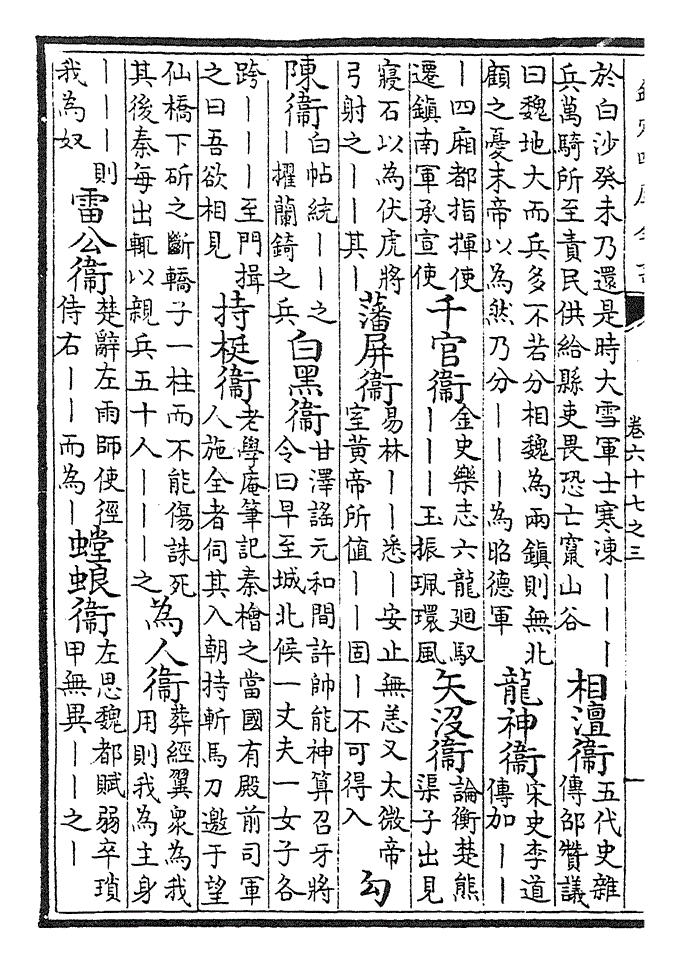 卷六十七之三
一
於白沙癸未乃還是時大雪軍士寒凍｜｜｜
兵萬騎所至責民供給縣吏畏恐亡竄山谷
相澶衞
五代史雜
傳邵贊議
曰魏地大而兵多不若分相魏為兩鎮則無北
顧之憂末帝以為然乃分｜｜｜為昭德軍
龍神衞
宋史李道
傳加｜｜
｜四廂都指揮使
遷鎮南軍承宣使
千官衞
金史樂志六龍廻馭
｜｜｜玉振珮環風
矢沒衞
論衡楚熊
渠子出見
寢石以為伏虎將
弓射之｜｜其｜
藩屏衞
易林｜｜悉｜安止無恙又太微帝
室黄帝所值｜｜固｜不可得入
勾
陳衞
白帖統｜｜之
｜擢蘭錡之兵
白黑衞
甘澤謠元和間許帥能神算召牙將
令曰早至城北候一丈夫一女子各
跨｜｜｜至門揖
之曰吾欲相見
持梃衞
老學庵筆記秦檜之當國有殿前司軍
人施全者伺其入朝持斬馬刀邀于望
仙橋下斫之斷轎子一柱而不能傷誅死
其後秦每出輒以親兵五十人｜｜｜之
為人衞
葬經翼衆為我
用則我為主身
｜｜｜則
我為奴
雷公衞
楚辭左雨師使徑
侍右｜｜而為｜
螳蜋衞
左思魏都賦弱卒瑣
甲無異｜｜之｜